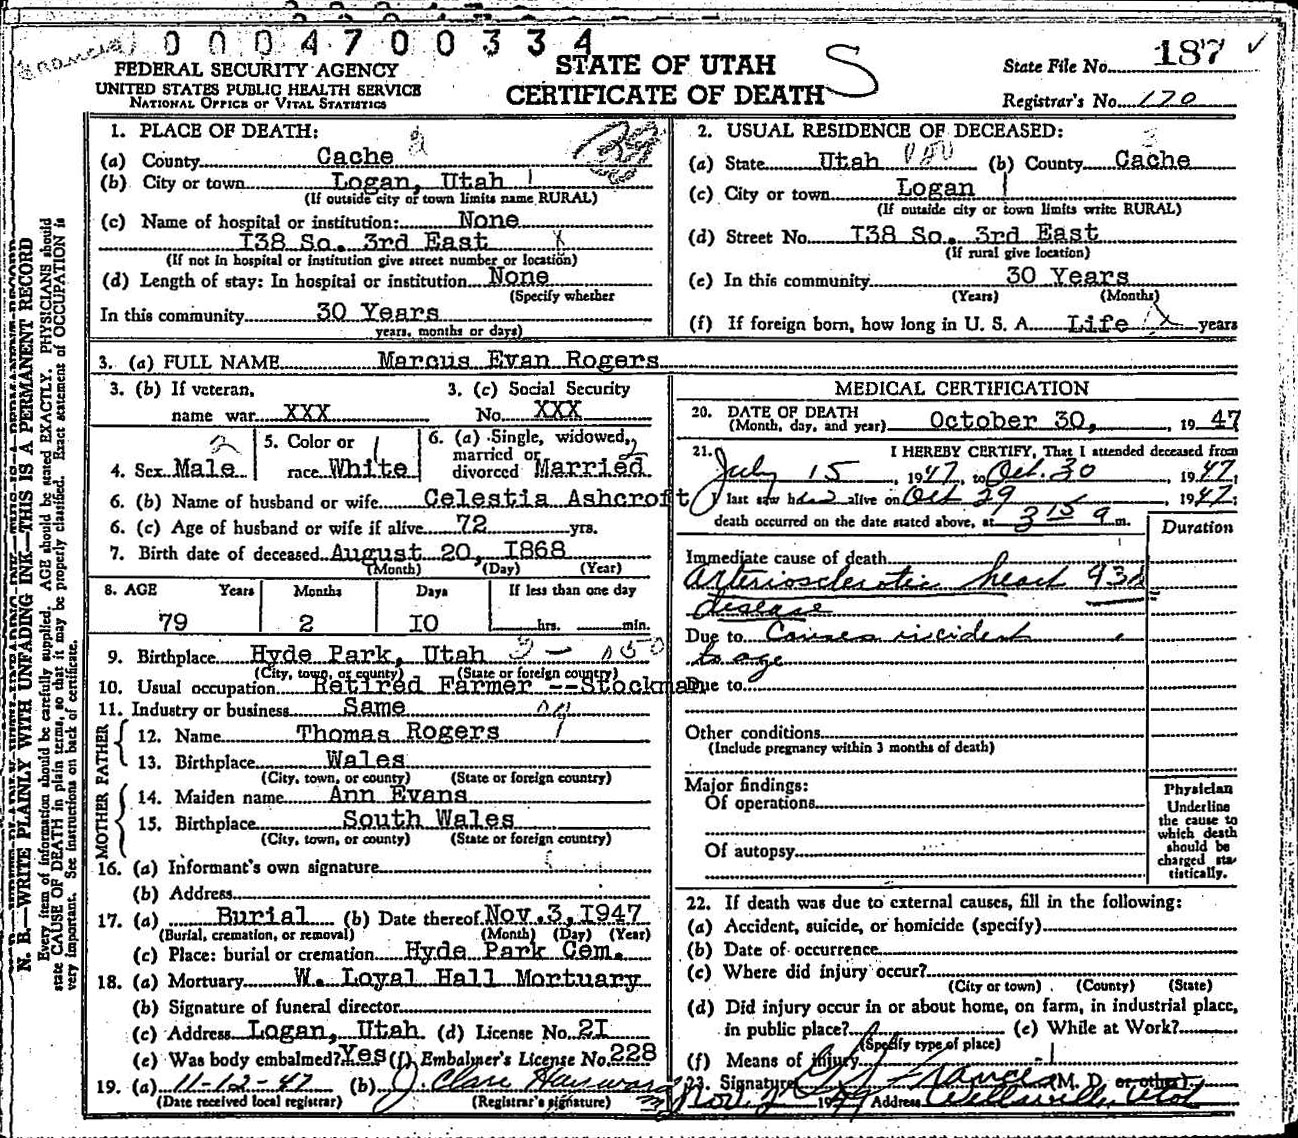 0 0 0 4 7 0 0 3 3 4
FEDERAL SECURITY AGENCY
UNITED STATES PUBLIC HEALTH SERVICE
NATIONAL OFFICE OF VITAL STATISTICS
STATE OF UTAH
CERTIFICATE OF DEATH S
State File No. 187
Registrar's No. 170
N. B.—WRITE PLAINLY WITH UNFADING INK—THIS IS A PERMANENT RECORD
Every item of information should be carefully supplied. AGE should be stated EXACTLY. PHYSICIANS should
state CAUSE OF DEATH in plain terms, so that it may be properly classified. Exact statement of OCCUPATION is
very important. See instructions on back of certificate.
1. PLACE OF DEATH:
(a) County Cache
(b) City or town Logan, Utah
(If outside city or town limits name RURAL)
(c) Name of hospital or institution: None
I38 So. 3rd East
(If not in hospital or institution give street number or location)
(d) Length of stay: In hospital or institution None
(Specify whether
In this community 30 Years
years, months or days)
2. USUAL RESIDENCE OF DECEASED:
(a) State Utah (b) County Cache
(c) City or town Logan
(If outside city or town limits write RURAL)
(d) Street No. I38 So. 3rd East
(If rural give location)
(e) In this community 30 Years
(Years) (Months)
(f) If foreign born, how long in U. S. A. Life years
3. (a) FULL NAME Marcus Evan Rogers
3. (b) If veteran,
name war XXX
3. (c) Social Security
No. XXX
4. Sex Male
5. Color or
race White
6. (a) Single, widowed,
married or
divorced Married
6. (b) Name of husband or wife Celestia Ashcroft
6. (c) Age of husband or wife if alive 72 yrs.
7. Birth date of deceased August 20, I868
(Month) (Day) (Year)
8. AGE Years Months Days If less than one day
79 2 IO hrs. min.
9. Birthplace Hyde Park, Utah
(City, town, or county) (State or foreign country)
10. Usual occupation Retired Farmer --Stockman
11. Industry or business Same
FATHER
12. Name Thomas Rogers
13. Birthplace Wales
(City, town, or county) (State or foreign country)
MOTHER
14. Maiden name Ann Evans
15. Birthplace South Wales
(City, town, or county) (State or foreign country)
16. (a) Informant's own signature
(b) Address
17. (a) Burial (b) Date thereof Nov. 3, I947
(Burial, cremation, or removal) (Month) (Day) (Year)
(c) Place: burial or cremation Hyde Park Cem.
18. (a) Mortuary W. Loyal Hall Mortuary
(b) Signature of funeral director
(c) Address Logan, Utah (d) License No. 2I
(e) Was body embalmed? Yes (f) Embalmer's License No. 228
19. (a) 11-12-47 (b) J. Clare Hayward
(Date received local registrar) (Registrar's signature)
MEDICAL CERTIFICATION
20. DATE OF DEATH
(Month, day, and year) October 30, , 19 47
21. I HEREBY CERTIFY, That I attended deceased from
July 15 , 1947, to Oct. 30 1947;
I last saw h alive on Oct 29 1947;
death occurred on the date stated above, at 3 15 a m.
Duration
Immediate cause of death
Arteriosclerotic heart 93d
disease
Due to Causes incident
to age
Due to
Other conditions
(Include pregnancy within 3 months of death)
Major findings:
Of operations
Of autopsy
Physician
Underline
the cause to
which death
should be
charged sta-
tistically.
22. If death was due to external causes, fill in the following:
(a) Accident, suicide, or homicide (specify)
(b) Date of occurrence
(c) Where did injury occur?
(City or town) (County) (State)
(d) Did injury occur in or about home, on farm, in industrial place,
in public place? (e) While at Work?
(Specify type of place)
(f) Means of injury
23. Signature Francis (M. D. or other)
Nov. 2 1947 Address Wellsville, Utah